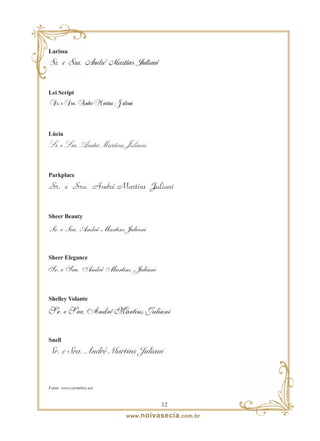 Larissa
Sr. e Sra. André Martins Juliani
Lei Script
Sr. e Sra. André Martins Juliani
Lúcia
Sr. e Sra. André Martins Juliani
Parkplace
Sr. e Sra. André Martins Juliani
Sheer Beauty
Sr. e Sra. André Martins Juliani
Sheer Elegance
Sr. e Sra. André Martins Juliani
Shelley Volante
Sr. e Sra. André Martins Juliani
Snell
Sr. e Sra. André Martins Juliani
Fonte: www.carimbos.net
12
www.noivasecia.com.br